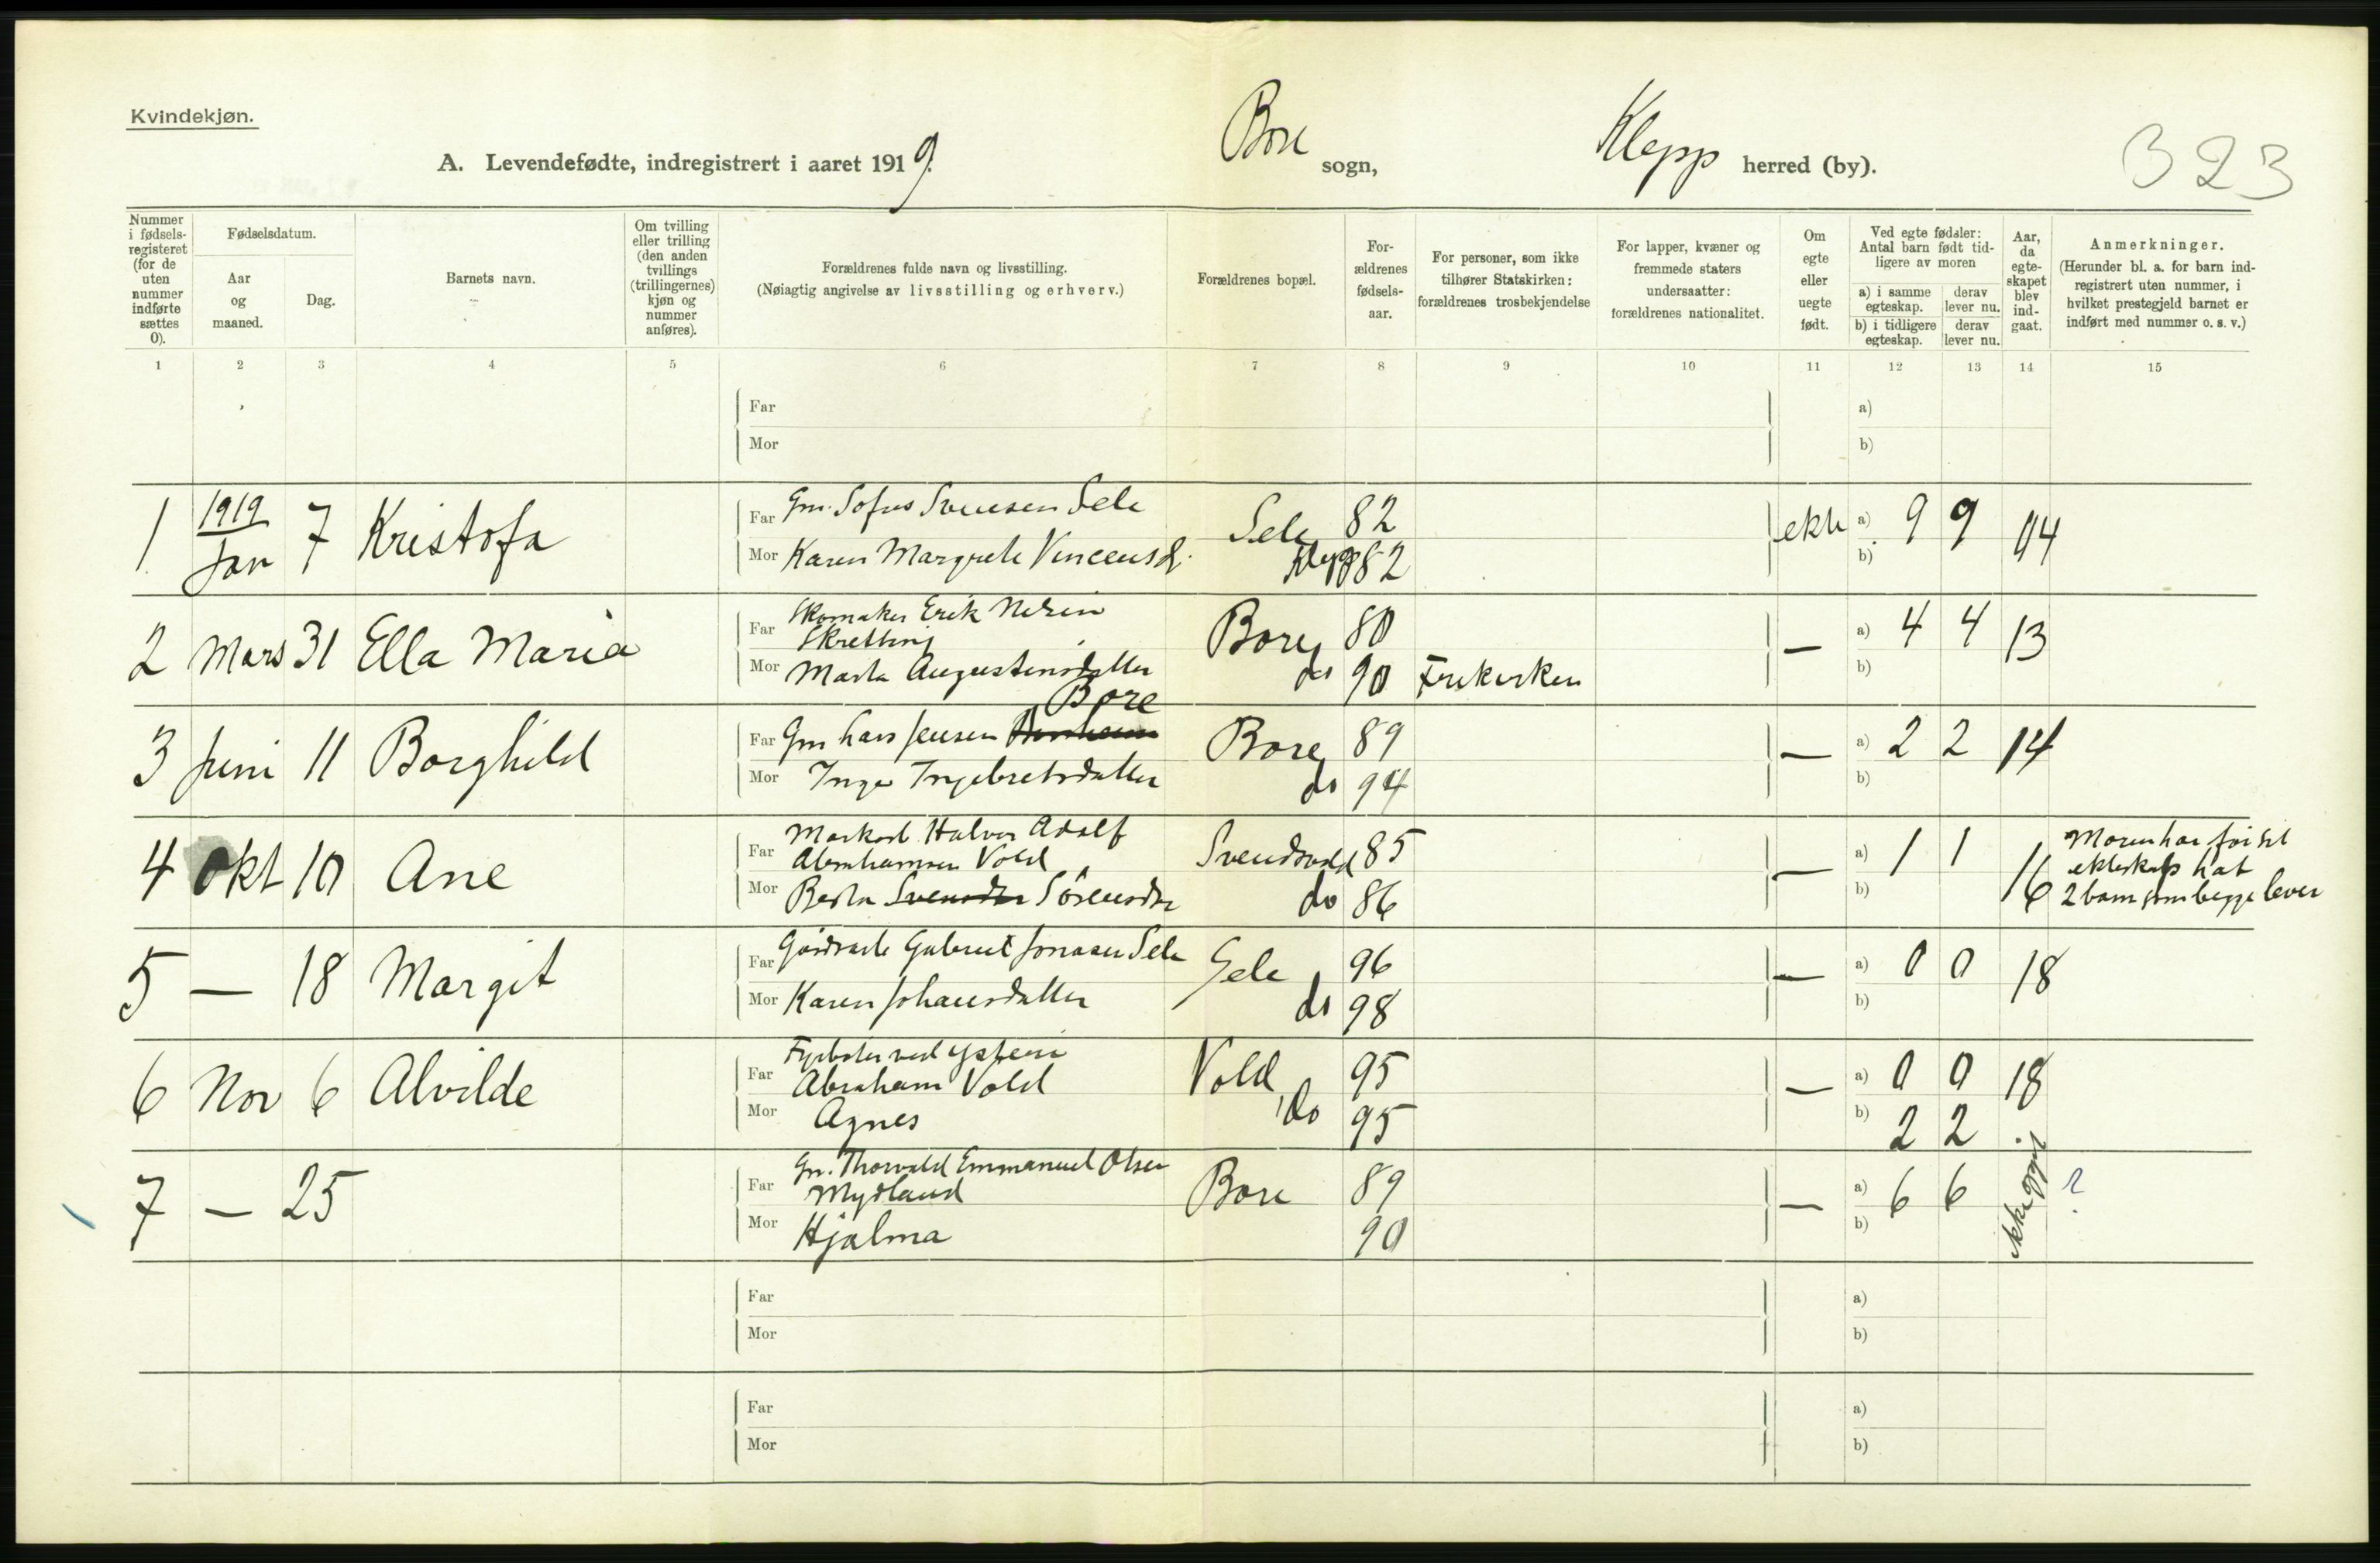 Kvindekjøn.
A. Levendefødte, indregistrert i aaret 1919.
Bore sogn,
Klepp herred (by).
323
Nummer i fødsels-registeret (for de uten nummer indførte sættes 0).
Fødselsdatum.
Aar og maaned.
Dag.
Barnets navn.
Om tvilling eller trilling (den anden tvillings (trillingernes) kjøn og nummer anføres).
Forældrenes fulde navn og livsstilling.
(Nøiagtig angivelse av livsstilling og erhverv.)
Forældrenes bopæl.
For-ældrenes fødsels-aar.
For personer, som ikke tilhører Statskirken: forældrenes trosbekjendelse
For lapper, kvæner og fremmede staters undersaatter: forældrenes nationalitet.
Om egte eller uegte født.
Ved egte fødsler: Antal barn født tid-ligere av moren
a) i samme egteskap.
derav lever nu.
b) i tidligere egteskap.
derav lever nu.
Aar, da egte-skapet blev ind-gaat.
Anmerkninger.
(Herunder bl. a. for barn ind-registrert uten nummer, i hvilket prestegjeld barnet er indført med nummer o. s. v.)
1 2 3 4 5 6 7 8 9 10 11 12 13 14 15
Far a)
Mor b)
1 1919 Jan 7 Kristofa
Far Gm. Sofus Svensen Sele Sele 82 ekte a) 9 9 04
Mor Karen Margrete Vincensd. Klepp 82 b)
2 Mars 31 Ella Maria
Far Skomaker Erik Skretting Bore 80 — a) 4 4 13
Mor Marta Augustensdatter do 90 Frikirken b)
3 Juni 11 Borghild
Bore
Far Gm Lars Jensen Bore 89 — a) 2 2 14
Mor Inga Ingebretsdatter do 94 b)
4 Okt 10 Ane
Far Halvor Adolf Abrahamsen Vold 85 — a) 1 1 16
Mor Berta Svensdtr Sörensdtr do 86 b)
Moren har i första ekteskap hat
2 barn som begge lever
5 — 18 Margit
Far Gabriel Jonasen Sele Sele 96 — a) 0 0 18
Mor Karen Johansdatter do 98 b)
6 Nov 6 Alvilde
Far Fyrböter ved
Abraham Vold Vold 95 — a) 0 0 18
Mor Agnes do 95 b) 2 2
7 — 25
Far Gm. Thorvald Emmanuel Olsen
Mydland Bore 89 — a) 6 6 ikke opgit ?
Mor Hjalma 90 b)
Far a)
Mor b)
Far a)
Mor b)